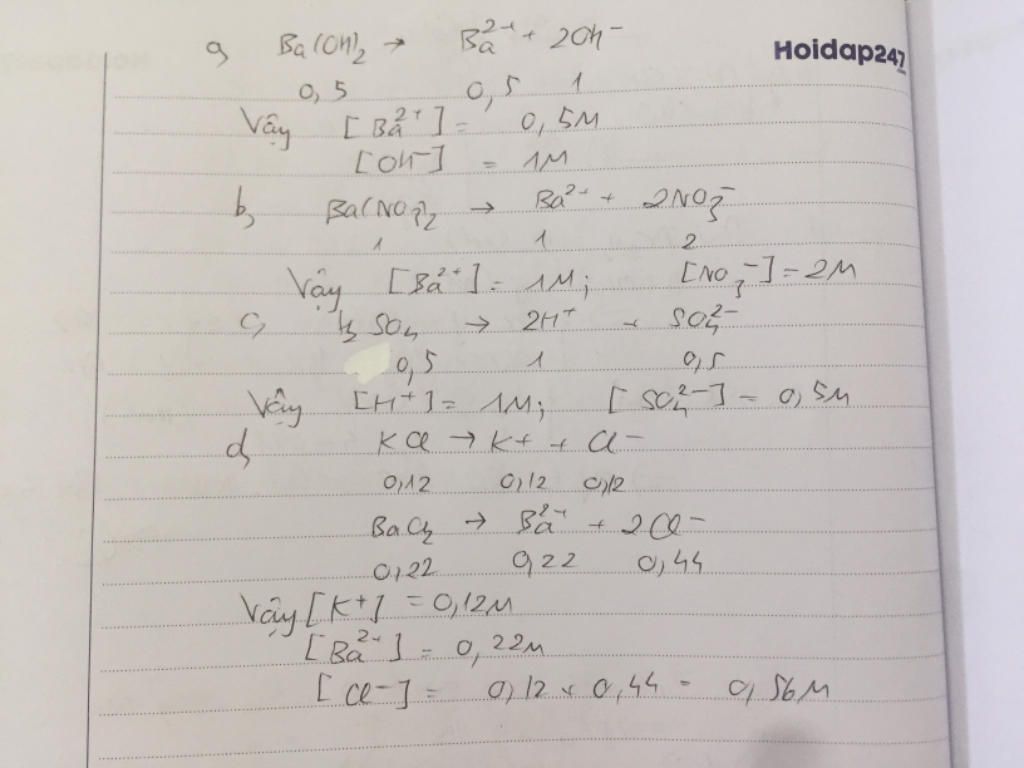 a, Ba(OH)₂ → Ba²⁺ + 2OH⁻
Hoidap247
0,5 0,5 1
Vậy [Ba²⁺] = 0,5M
[OH⁻] = 1M
b, Ba(NO₃)₂ → Ba²⁺ + 2NO₃⁻
1 1 2
Vậy [Ba²⁺] = 1M; [NO₃⁻] = 2M
c, H₂SO₄ → 2H⁺ + SO₄²⁻
0,5 1 0,5
Vậy [H⁺] = 1M; [SO₄²⁻] = 0,5M
d, KCl → K+ + Cl⁻
0,12 0,12 0,12
BaCl₂ → Ba²⁺ + 2Cl⁻
0,22 0,22 0,44
Vậy [K+] = 0,12M
[Ba²⁺] = 0,22M
[Cl⁻] = 0,12 + 0,44 = 0,56M